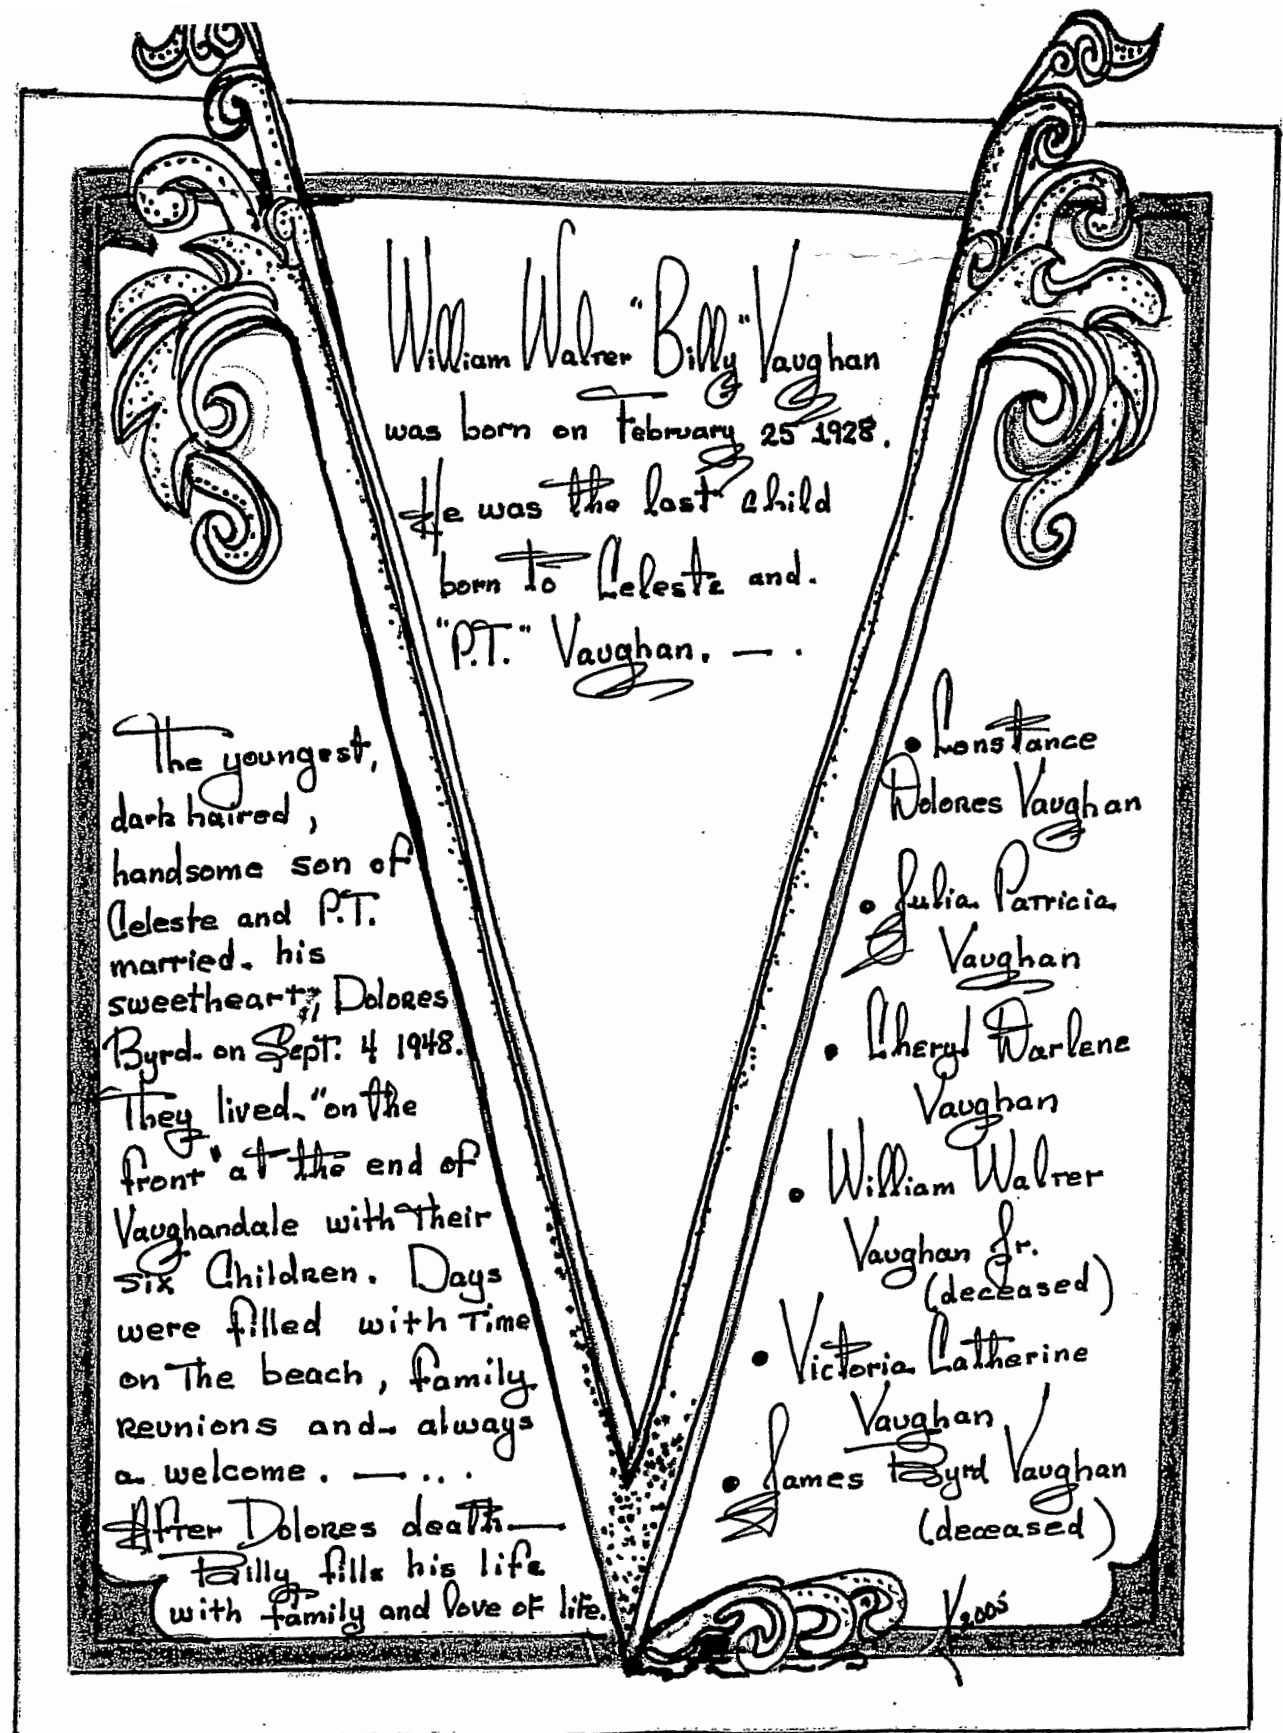 William Walter "Billy" Vaughan
was born on February 25 1928.
He was the last child
born to Celeste and
"P.T." Vaughan. — .
The youngest,
dark haired,
handsome son of
Celeste and P.T.
married his
sweetheart, Dolores
Byrd on Sept. 4 1948.
They lived "on the
front" at the end of
Vaughandale with their
six Children. Days
were filled with Time
on The beach, family
Reunions and always
a welcome. — . . .
After Dolores death —
Billy fills his life
with family and love of life.
• Constance
Dolores Vaughan
• Julia Patricia
Vaughan
• Cheryl Darlene
Vaughan
• William Walter
Vaughan Jr.
(deceased)
• Victoria Catherine
Vaughan
• James Byrd Vaughan
(deceased)
2005